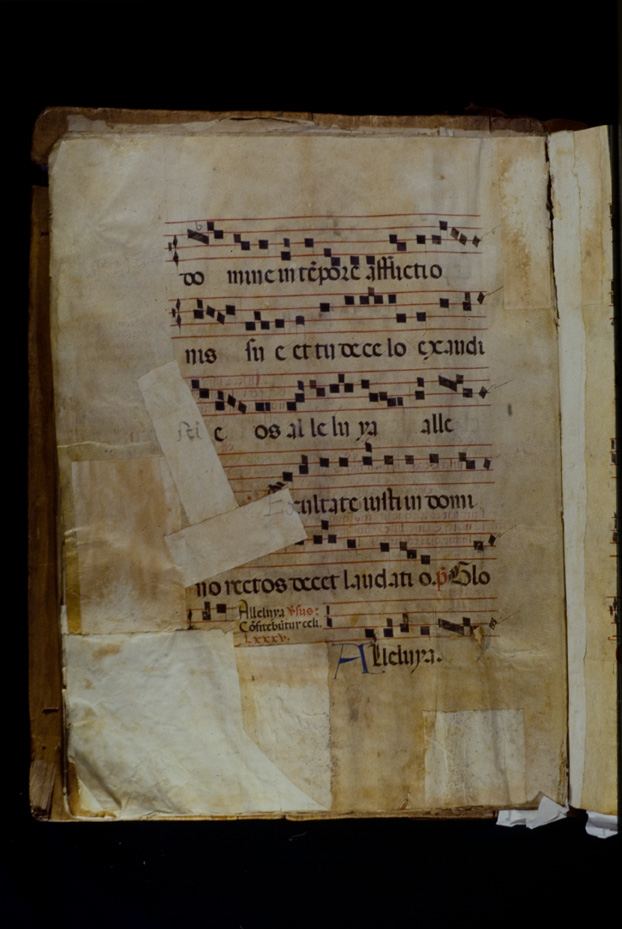 do mine in tēpore afflictio
nis su e et tu de ce lo exaudi
sti e os al le lu ya alle
Exultate iusti in domi
no rectos decet laudati o. p̄ Glo
Alleluya v̄sus:
Cōfitebūtur celi.
lxxxv.
Alleluya.